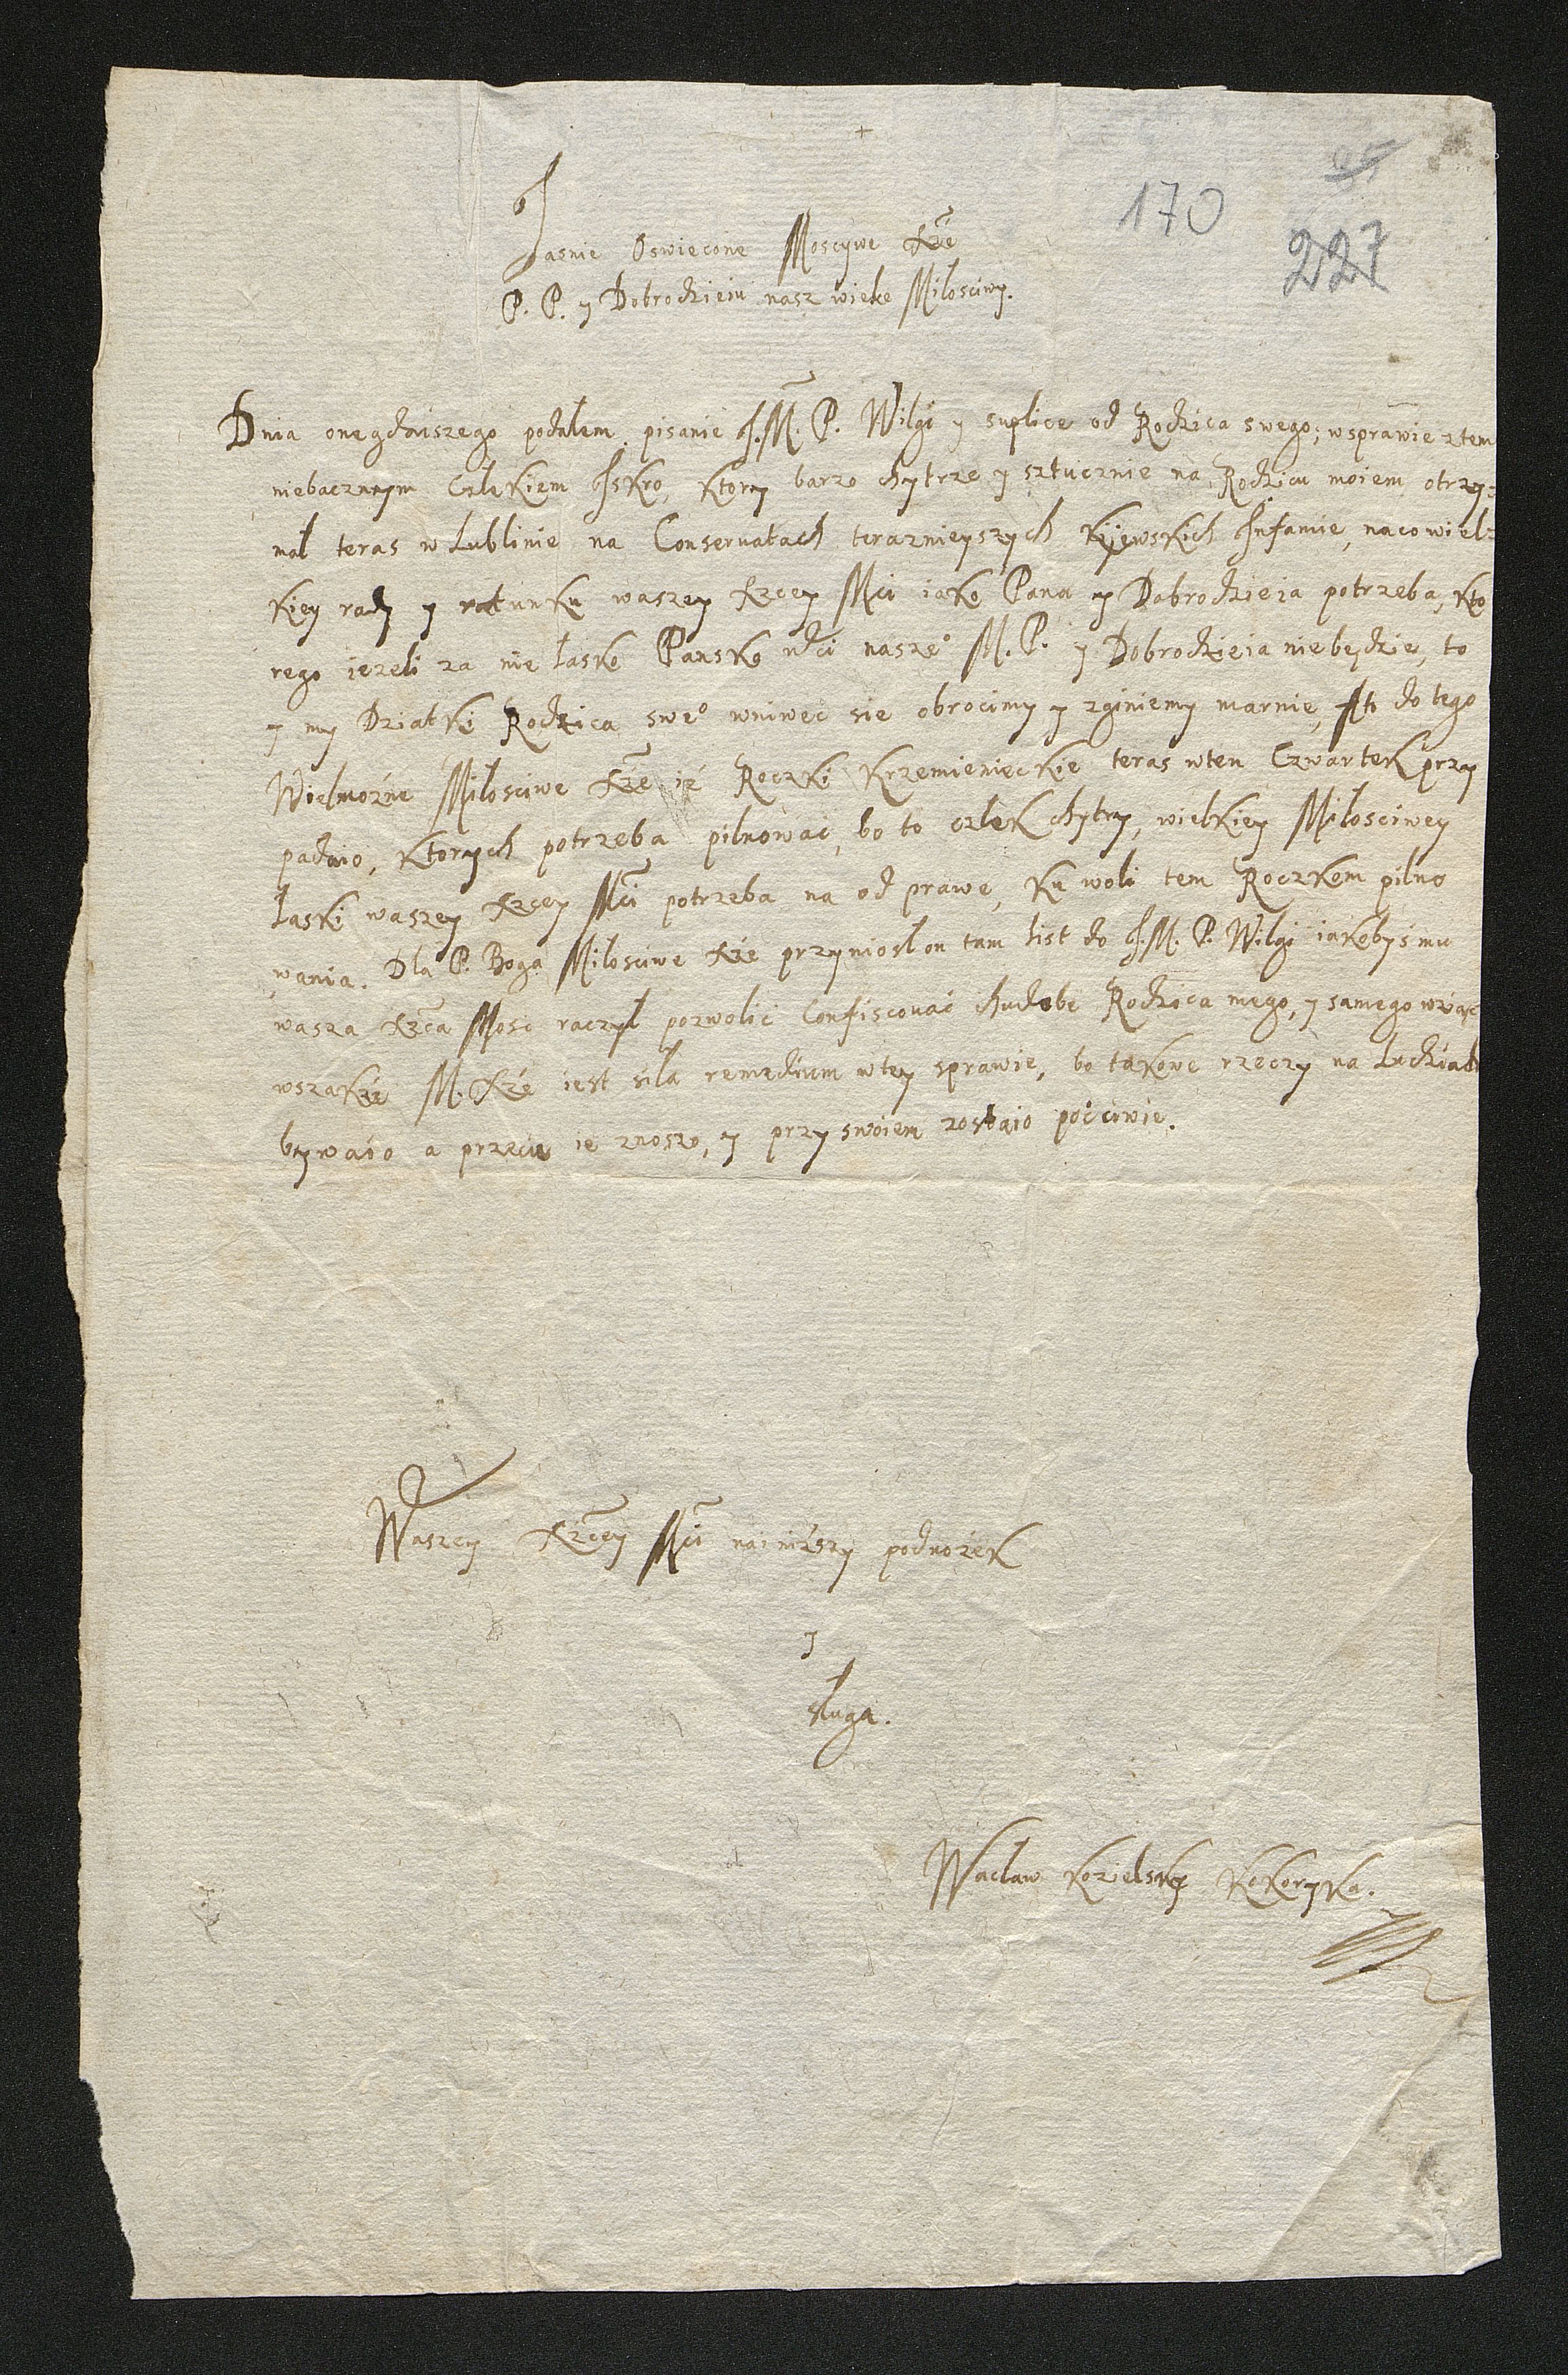 +
95
170
227
Jasnie Oswiecone Moscywe Xże
P. P. y Dobrodzieiu nasz wielce Miłosciwy.
Dnia onegdaiszego podałem pisanie J. M. P. Wilgi y suplice od Rodzica swego; wsprawie ztem
niebacznym Człekiem Iskro, ktory barzo chytrze y sztucznie na Rodzicu moiem otrzy=
mał teras w Lublinie na Conseruatach teraznieyszych Kijewskich Infamie, naco wiel=
kiey rady y ratunku waszey Xzcey Mci iako Pana y Dobrodzieia potrzeba, kto
rego iezeli za nie łasko Pansko naszeo M. P. y Dobrodzieia niebędzie, to
y my Dziatki Rodzica sweo wniwec sie obrocimy y zginiemy marnie, do tego
Wielmożne Miłosciwe Xże iż Roczki Krzemienieckie teras wten Czwartek przy
padaio, ktorych potrzeba pilnowac, bo to człek chytry, wielkiey Miłosciwey
łaski waszey Xzcey Mci potrzeba na od prawe, ku woli tem Roczkom pilno
wania. Dla P. Boga Miłosciwe Xże przyniosł on tam list do J. M. P. Wilgi iakobyś mu
wasza Xzca Mosc raczył pozwolic Confiscować chudobe Rodzica mego, y samego wziąć
wszakże M. Xże iest siła remedium wtey sprawie, bo takowe rzeczy na Ludziach
bywaio a przecie ie znoszo, y przy swoiem zostaio poćciwie.
Waszey Xżcey Mci nainiższy podnożek
J
sługa.
Wacław Kozielsky Kokoryka.